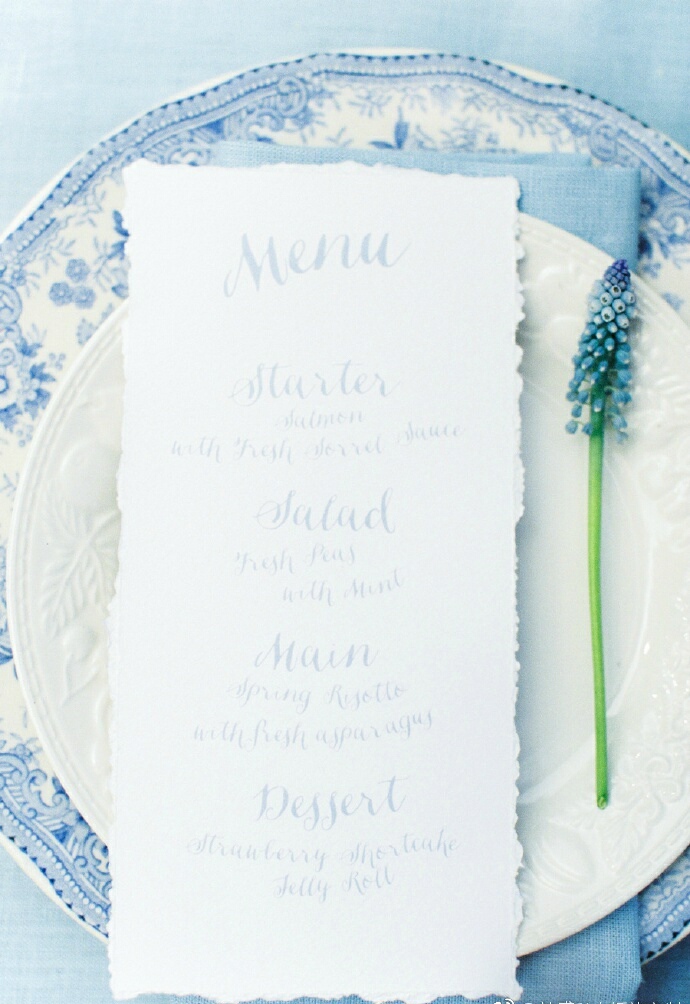 Menu
Starter
Salmon
with Fresh Sorrel Sauce
Salad
Fresh Peas
with Mint
Main
Spring Risotto
with fresh asparagus
Dessert
Strawberry Shortcake
Jelly Roll